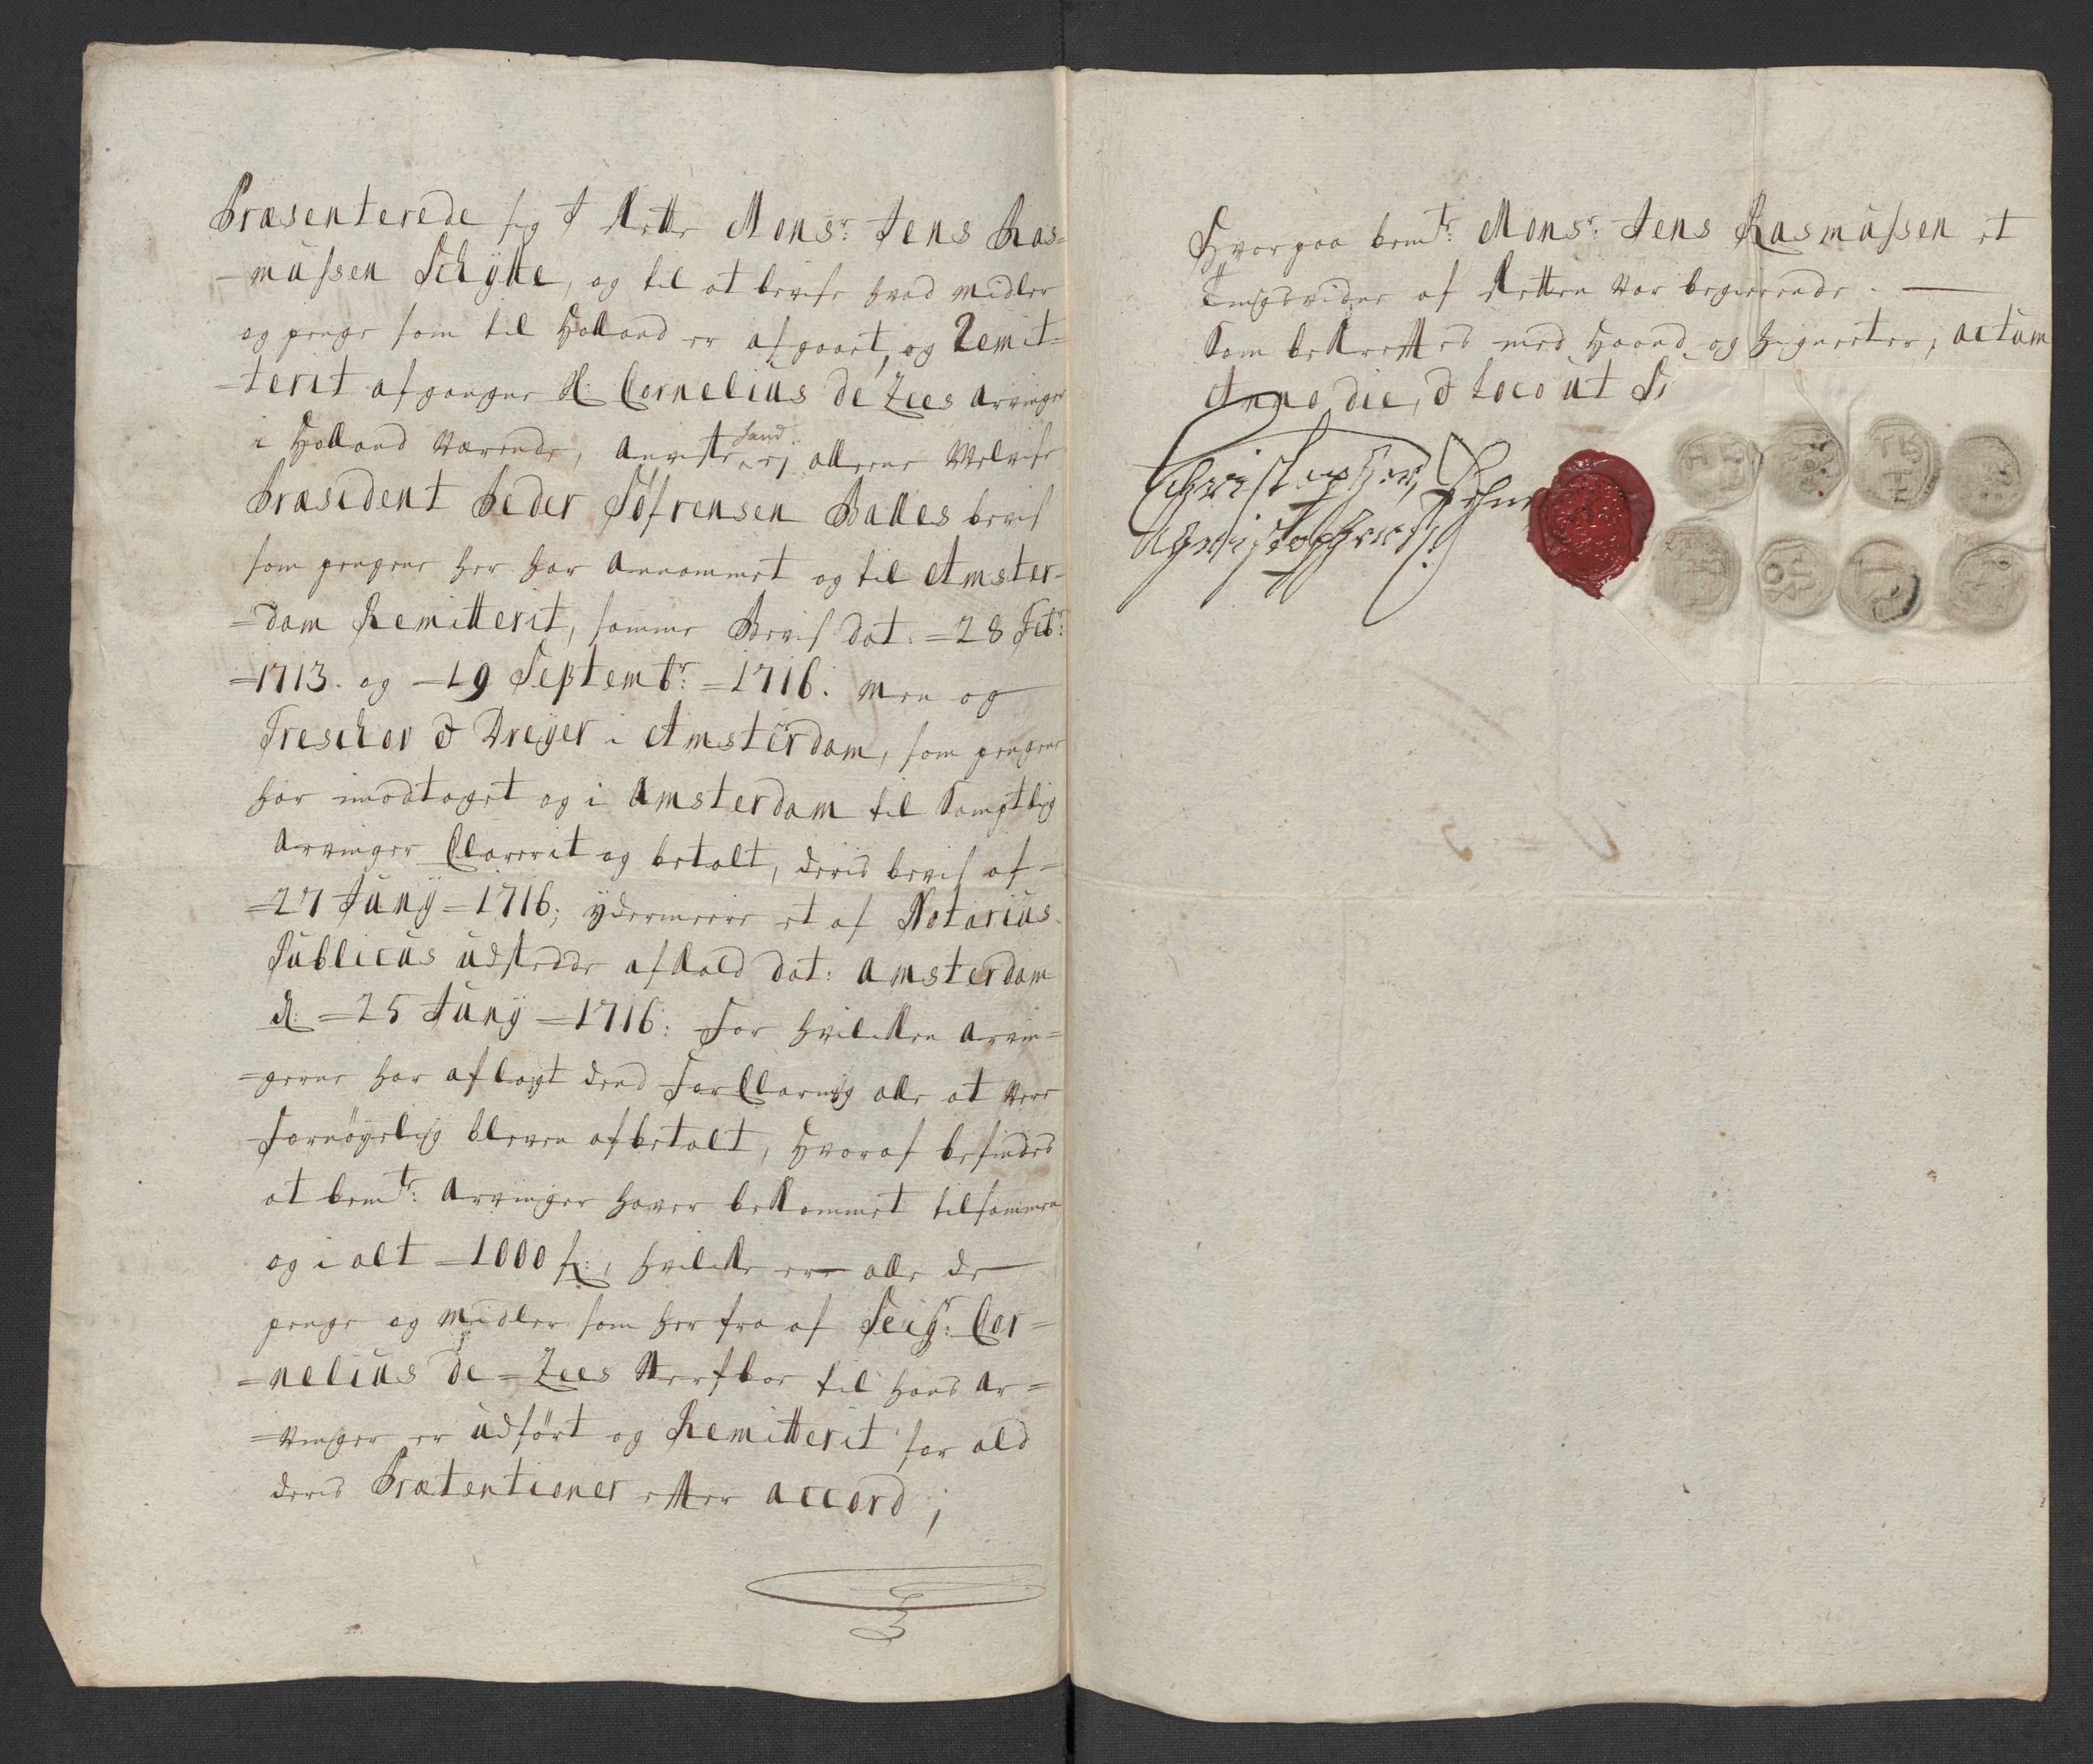 Præsenterede sig I Rette Monsr: Jens Ras=
=mussen Schytte, og til at bevise hvad midler
og penge som til Holland er afgaaet, og Remit=
=terit afgangne H: Cornelius de Zees arvinger
i Holland værende, anviste hand allerne Velvise
Præsident Peder Söfrensen Balles bevis
som pengene her har annammet og til Amster=
=dam Remitterit, samme Bevis dat: =28 Febr:
=1713. og =19 Septembr: =1716. men og
Treschov & Dreyer i Amsterdam, som pengene
har imodtaget og i Amsterdam til Samptlig
Arvinger Clarerit og betalt, deris bevis af=
=27 Juny =1716; ydermeere et af Notarius
Publicus udstedde afkald dat: Amsterdam
d: =25 Juny =1716: For hvilcken arvin=
=gerne har aflagt dend forClaring alle at være
fornöyelig bleven afbetalt, hvoraf befindes
at bemte: Arvinger haver bekommet tilsammen
og i alt =1000 f:, hvilcke ere alle de
penge og midler som her fra af Seigr: Cor=
=nelius de =Zees Sterfboe til hans Ar=
=vinger er udfört og Remitterit for ald
deris Prætentioner efter accord;
Hvorpaa bemte: Monsr: Jens Rasmussen et
Tingsvidne af Retten var begierende.
Som bekreftes med Haand og Zigneter, actum
Anno die, & Loco ut S
Christopher
Christophers: